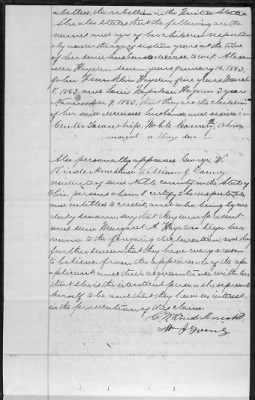 abetted, the rebellion in the United States
She also states that the following are the
names and ages of her children respectively
under the age of sixteen years at the time
of her said husbands decease to wit
Hayden seven years January 14, 1863
Franklin Hayden five years
8, 1863, and Louis Hayden 3 years
November 9 1863, that they are the children
of her said deceased husband and reside in
Center Township Noble County, Ohio
Also personally appeared George W.
and William J. Young
residents of said Noble county in the State of
Ohio, persons whom I certify to be respectable
and entitled to credit, and who being by me
duly sworn, say that they were present
and saw Margaret A. Hayden sign her
name to the foregoing declaration; and they
further swear that they have every reason
to believe from the appearance of the
applicant and their acquaintance with her
that she is the identical person she represents
herself to be, and that they have no interest
in the prosecution of this claim.
W. J. Young